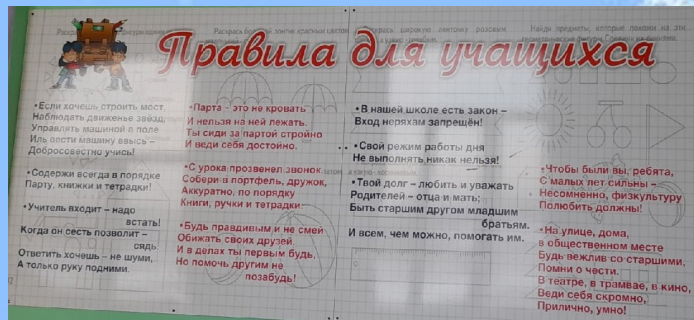 Правила для учащихся
•Если хочешь строить мост,
Наблюдать движенье звёзд,
Управлять машиной в поле
Иль вести машину ввысь –
Добросовестно учись!
•Содержи всегда в порядке
Парту, книжки и тетрадки!
•Учитель входит – надо
встать!
Когда он сесть позволит –
сядь.
Ответить хочешь – не шуми,
А только руку подними.
•Парта - это не кровать
И нельзя на ней лежать.
Ты сиди за партой стройно
И веди себя достойно.
•С урока прозвенел звонок.
Собери в портфель, дружок,
Аккуратно, по порядку
Книги, ручки и тетрадки.
•Будь правдивым и не смей
Обижать своих друзей.
И в делах ты первым будь,
Но помочь другим не
позабудь!
•В нашей школе есть закон –
Вход неряхам запрещён!
•Свой режим работы дня
Не выполнять никак нельзя!
•Твой долг – любить и уважать
Родителей – отца и мать;
Быть старшим другом младшим
братьям.
И всем, чем можно, помогать им.
•Чтобы были вы, ребята,
С малых лет сильны –
Несомненно, физкультуру
Полюбить должны!
•На улице, дома,
в общественном месте
Будь вежлив со старшими,
Помни о чести.
В театре, в трамвае, в кино,
Веди себя скромно,
Прилично, умно!